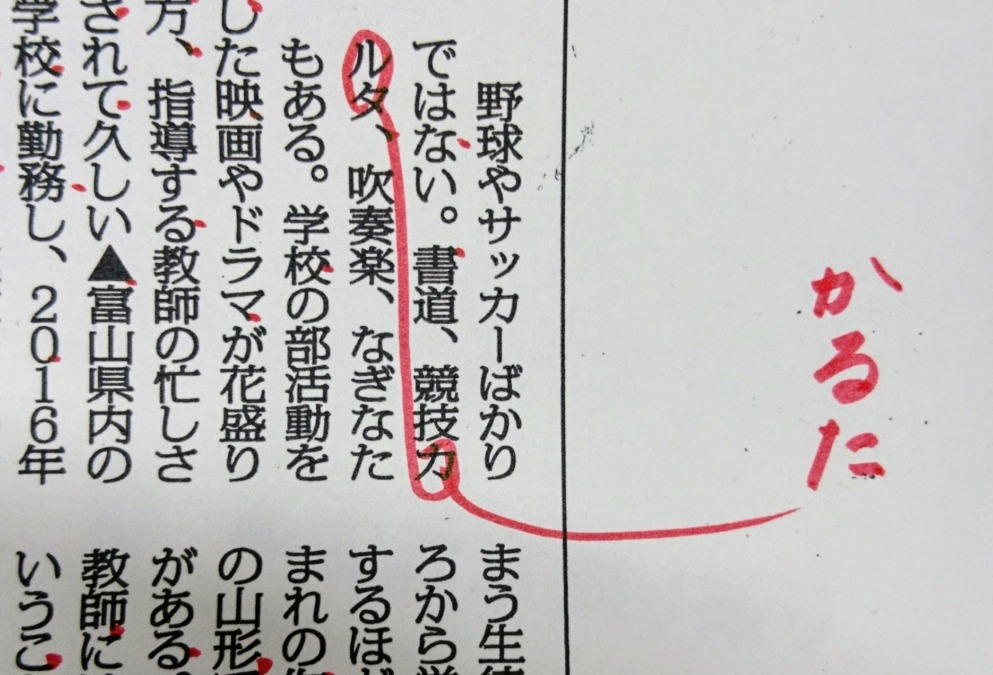 かるた
野球やサッカーばかり
ではない。書道、競技カ
ルタ、吹奏楽、なぎなた
もある。学校の部活動を
した映画やドラマが花盛り
方、指導する教師の忙しさ
されて久しい▲富山県内の
学校に勤務し、2016年
まう生
ろから
するほ
まれの
の山形
がある
教師に
いうこ